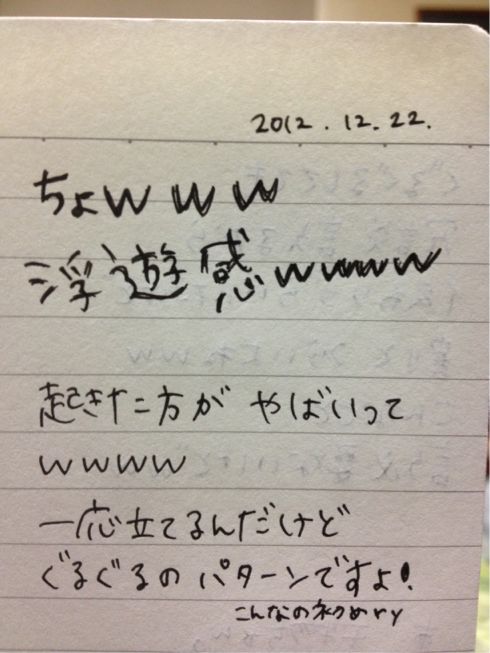 2012.12.22.
ちょwww
浮遊感wwww
起きた方がやばいって
wwww
一応立てるんだけど
ぐるぐるのパターンですよ!
こんなのネクめry